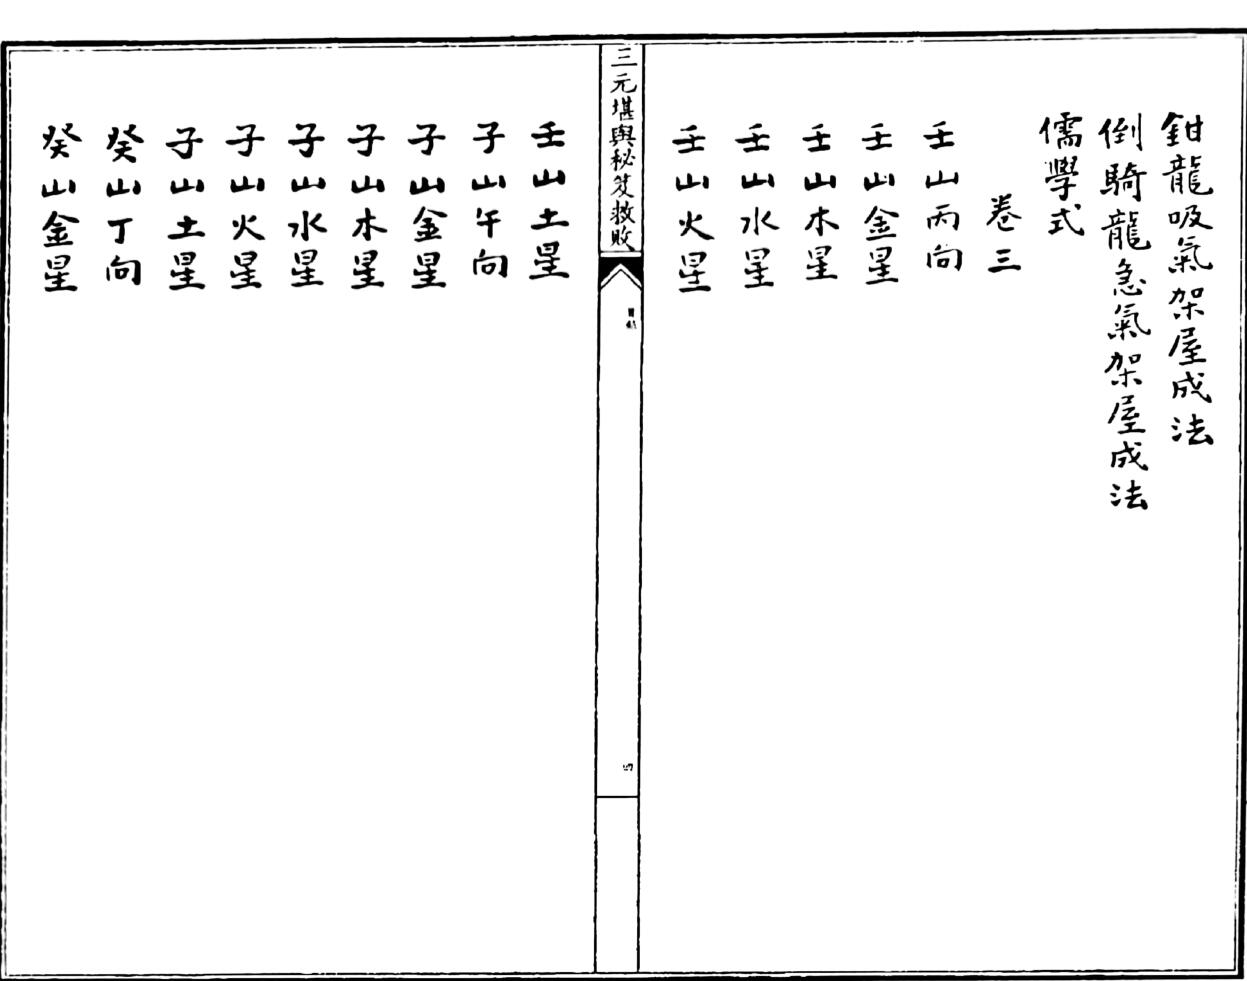 鉗龍吸氣架屋成法
倒騎龍急氣架屋成法
儒學式
卷三
壬山丙向
壬山金星
壬山木星
壬山水星
壬山火星
三元堪輿秘笈救敗
壬山土星
子山午向
子山金星
子山木星
子山水星
子山火星
子山土星
癸山丁向
癸山金星